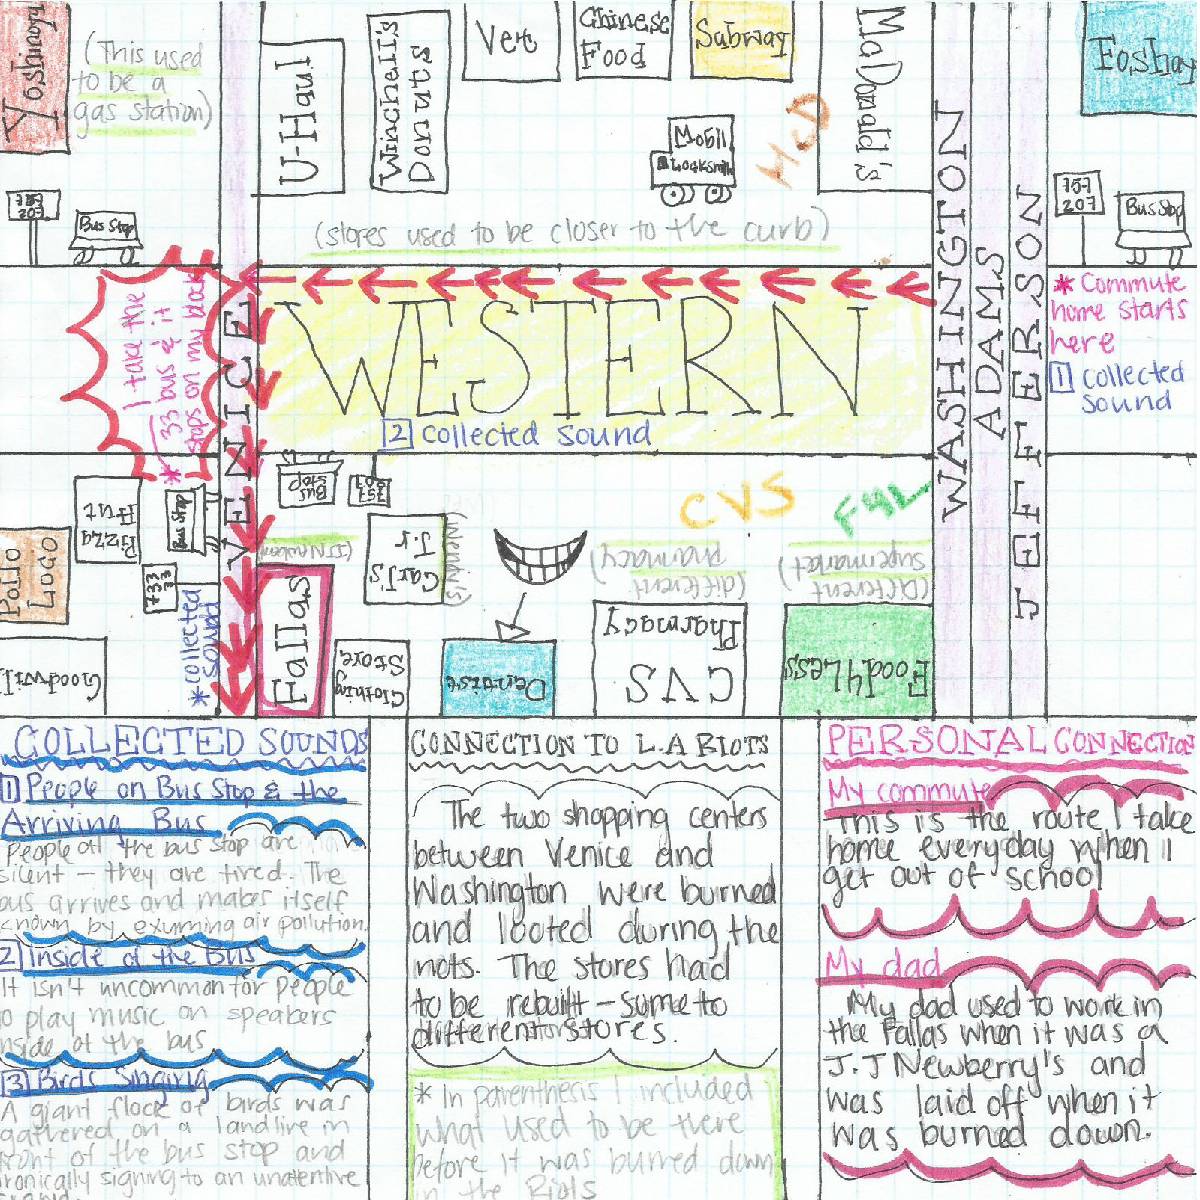 Yoshinoya
(This used
to be a
gas station)
U-Haul
Winchell's
Donuts
Vet
Chinese
Food
Subway
Mobil
Locksmith
McD
McDonald's
Foshay
757
207
Bus Stop
757
207
Bus Stop
(stores used to be closer to the curb)
WASHINGTON
ADAMS
JEFFERSON
VENICE
WESTERN
2 collected sound
* I take the
33 bus & it
stops on my block
* Commute
home starts
here
1 collected
sound
Pizza
Hut
Bus Stop
Bus
Stop
757
207
Pollo
Loco
733
33
* collected
sound
Goodwill
Fallas
Carl's
Jr
(Wendy's)
Clothing
Store
Dentist
CVS
(different
pharmacy)
CVS
Pharmacy
F4L
(different
supermarket)
Food4Less
COLLECTED SOUNDS
1 People on Bus Stop & the
Arriving Bus
People at the bus stop are
silent — they are tired. The
bus arrives and makes itself
known by exuming air pollution.
2 Inside of the Bus
It isn't uncommon for people
to play music on speakers
inside of the bus
3 Birds Singing
A giant flock of birds was
gathered on a landline in
front of the bus stop and
ironically signing to an unattentive
CONNECTION TO L.A RIOTS
The two shopping centers
between Venice and
Washington were burned
and looted during the
riots. The stores had
to be rebuilt — some to
different stores.
* In parenthesis I included
what used to be there
before it was burned down
in the Riots
PERSONAL CONNECTION
My commute
This is the route I take
home everyday when I
get out of school
My dad
My dad used to work in
the Fallas when it was a
J.J Newberry's and
was laid off when it
was burned down.